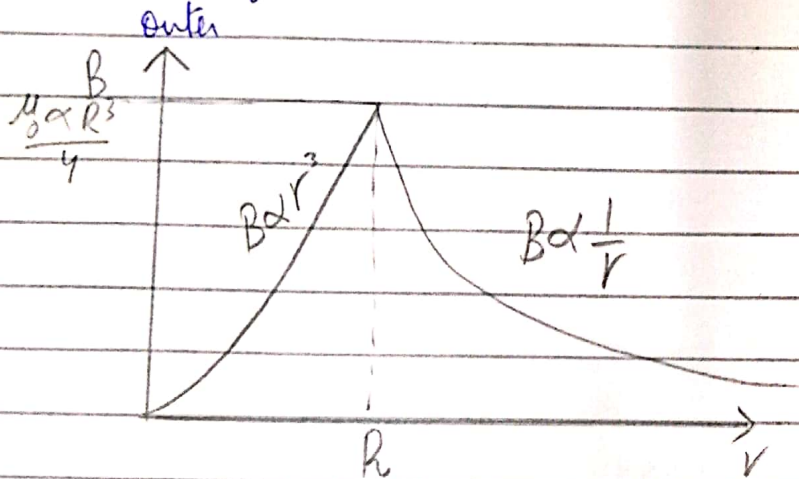 outer
B
μ₀ α R³
4
B α r³
B α 1/r
R
r